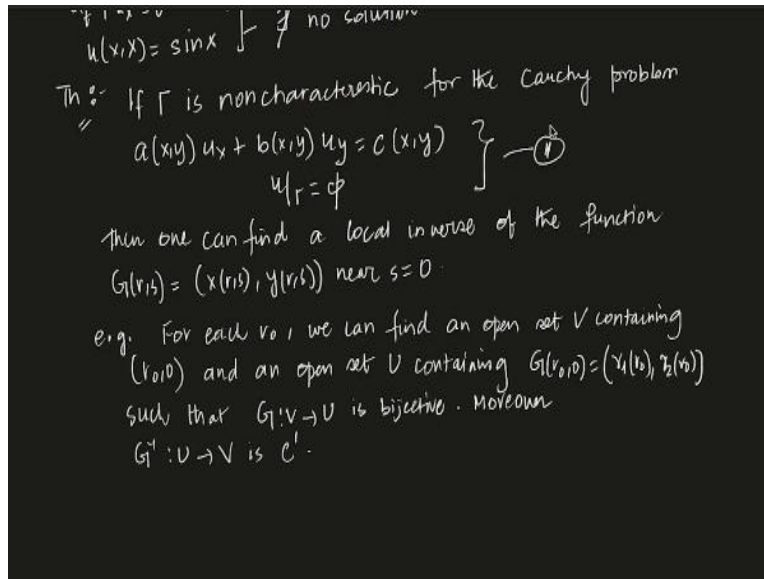 no solution
u(x,x) = sinx
Th :- If Γ is noncharacteristic for the Cauchy problem
a(x,y) ux + b(x,y) uy = c(x,y)
u|Γ = ϕ
then one can find a local inverse of the function
G(r,s) = (x(r,s), y(r,s)) near s=0.
e.g. For each r0, we can find an open set V containing
(r0,0) and an open set U containing G(r0,0) = (γ1(r0), γ2(r0))
such that G:V→U is bijective. Moreover
G⁻¹:U→V is C¹.